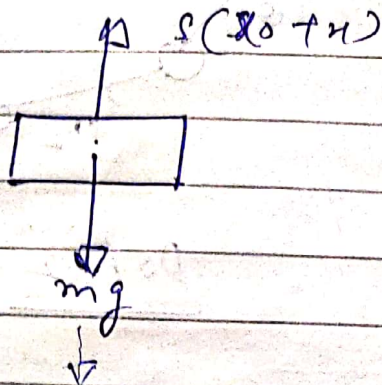 S(x0 + x)
mg